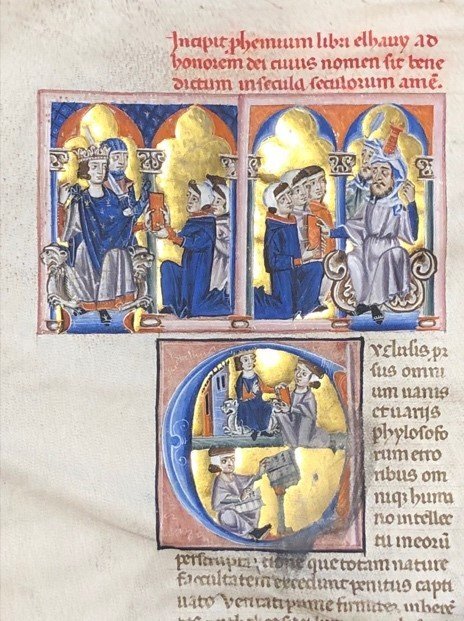 Incipit phemium libri elhauy ad
honorem dei cuius nomen sit bene
dictum in secula seculorum amē.
xclusis pr
sus omni
um uariis
et uariis
phylosofo
rum erro
ribus om
niq; huma
no intellec
tu in eorū
que totam nature
facultatem excedunt penitus capti
uato ueritati prime firmiter inhere